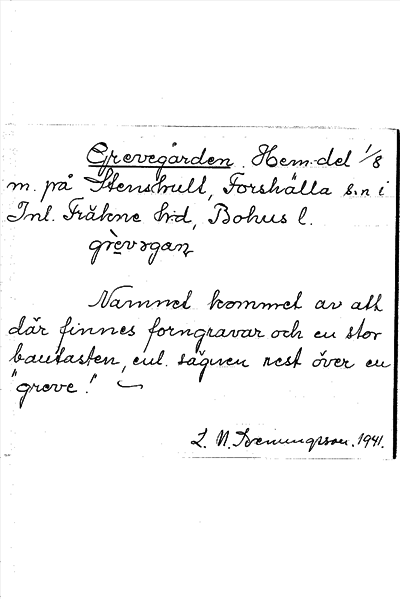 Grevegården. Hem.del 1/8
m. på Stenshult, Forshälla s:n i
Inl. Fräkne h:d, Bohus l.
grèvəgaɳ
Namnet kommet av att
där finnes forngravar och en stor
bautasten, enl. sägnen rest över en
"greve".
L. N. Svenungsson. 1941.